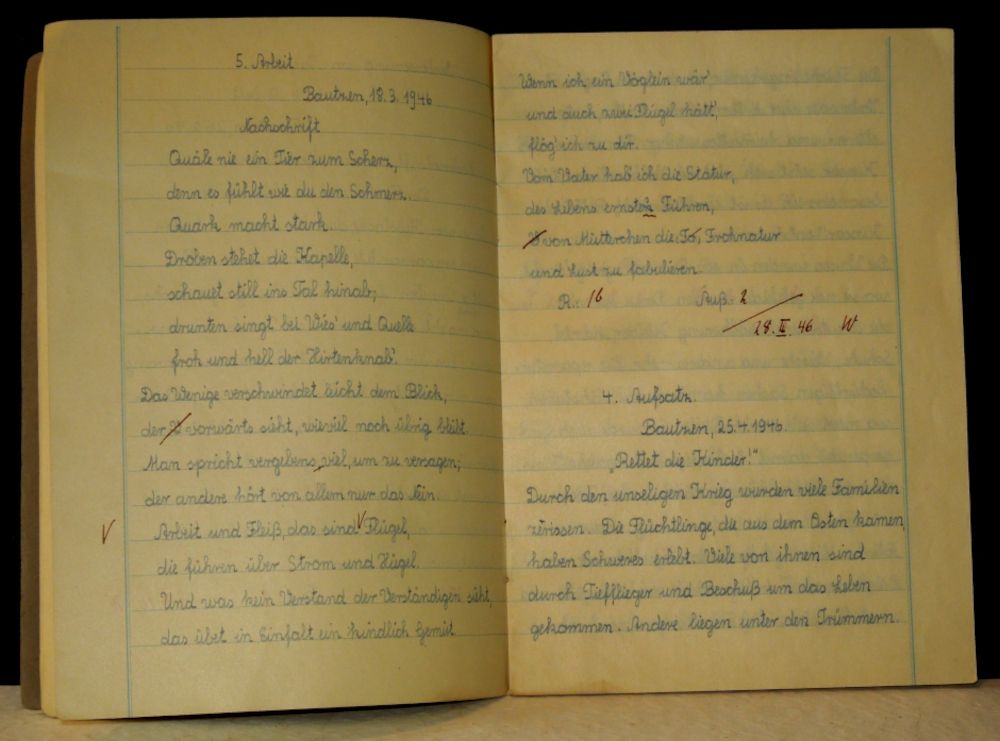 5. Arbeit
Bautzen, 18.3.1946
Nachschrift
Quäle nie ein Tier zum Scherz,
denn es fühlt wie du den Schmerz.
Quark macht stark.
Droben stehet die Kapelle,
schauet still ins Tal hinab;
drunten singt bei Wies' und Quelle
froh und hell der Hirtenknab'.
Das Wenige verschwindet leicht dem Blick,
der vorwärts sieht, wieviel noch übrig bleibt.
Man spricht vergebens viel, um zu versagen;
der andere hört von allem nur das Nein.
Arbeit und Fleiß, das sind Flügel,
die führen über Strom und Hügel.
Und was kein Verstand der Verständigen sieht,
das übet in Einfalt ein kindlich Gemüt
Wenn ich ein Vöglein wär'
und auch zwei Flügel hätt',
flög' ich zu dir.
Vom Vater hab' ich die Statur,
des Lebens ernstes Führen,
von Mütterchen die Frohnatur
und Lust zu fabulieren.
R. 16 Auß. 2
28. III. 46 W
4. Aufsatz.
Bautzen, 25.4.1946.
„Rettet die Kinder!“
Durch den unseligen Krieg wurden viele Familien
zerissen. Die Flüchtlinge, die aus dem Osten kamen,
haben Schweres erlebt. Viele von ihnen sind
durch Tiefflieger und Beschuß um das Leben
gekommen. Andere liegen unter den Trümmern.